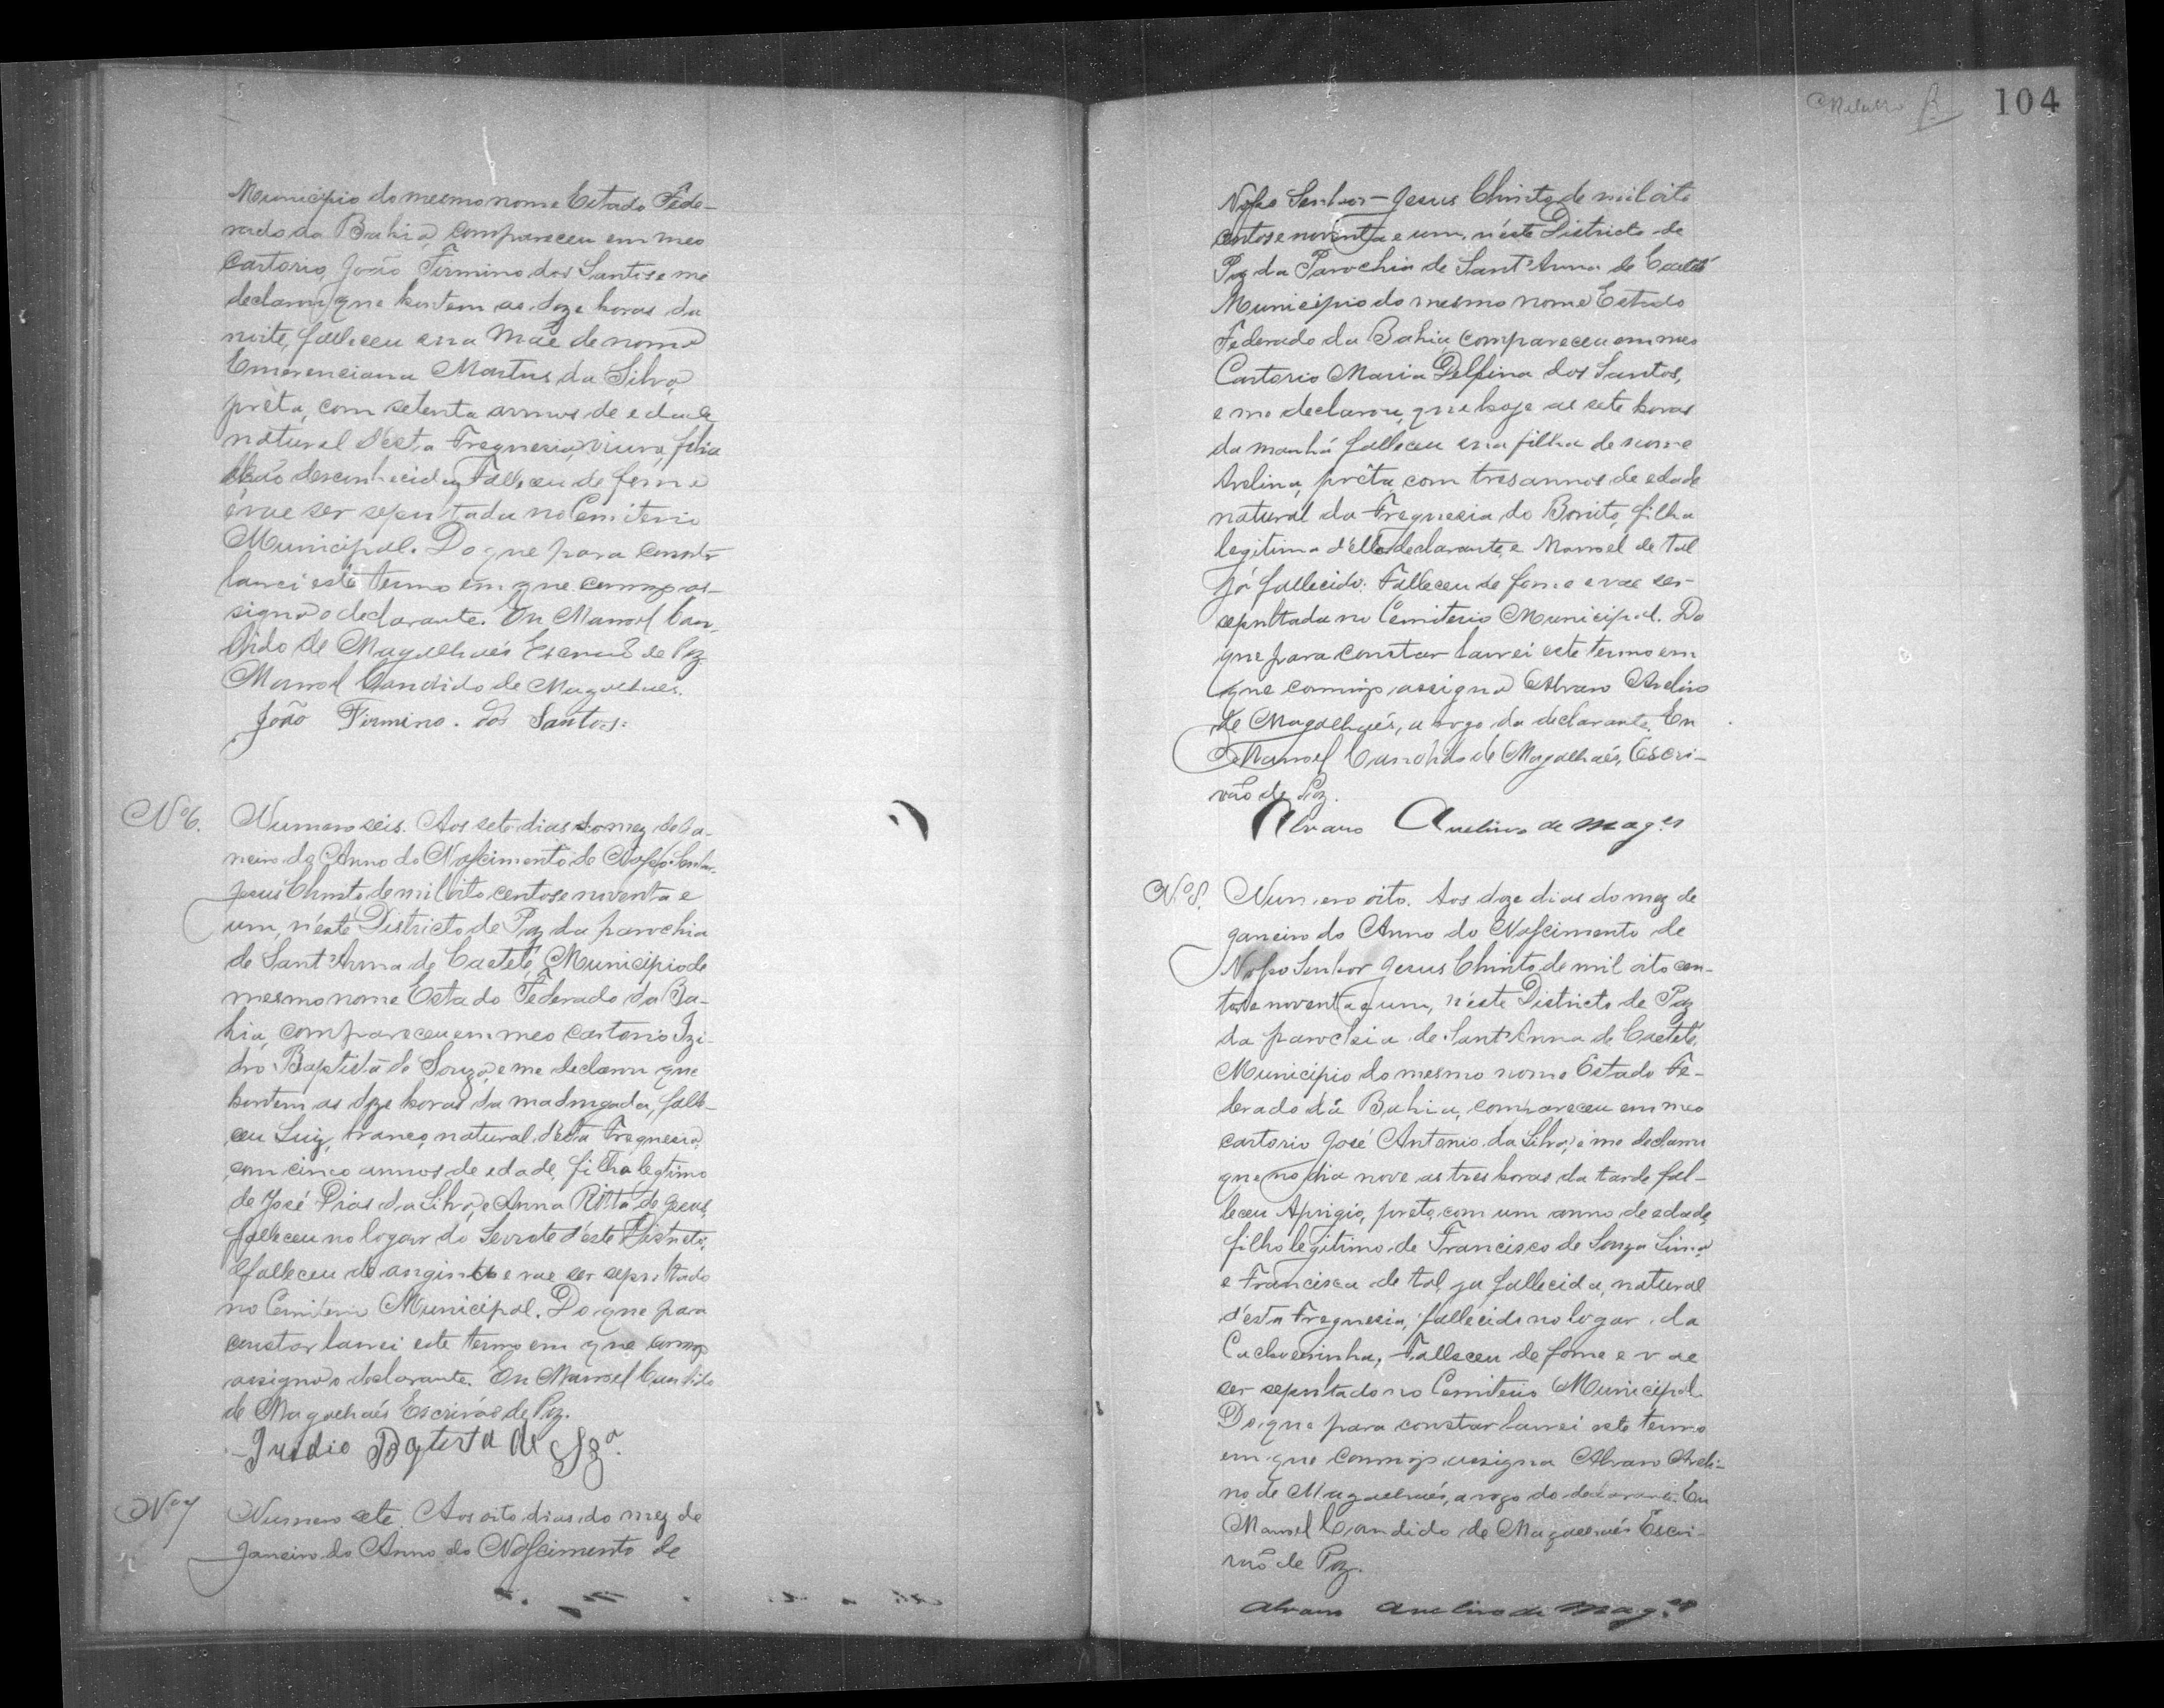 Municipio do mesmo nome Estado Fede-
rado da Bahia, compareceu em meo
Cartorio, João Firmino dos Santos e me
declarou que hontem as doze horas da
noite, falleceu sua Mãe de nome
Emerenciana Martins da Silva,
prêta, com setenta annos de edade
natural d'esta Freguesia, viuva, filia
ção desconhecida, Falleceu de fome
e vae ser sepultada no Cemiterio
Municipal. Do que para constar
lancei este termo em que commigo as-
signa o declarante. Eu Manoel Can-
dido de Magalhaés Escrivão de Paz
Manoel Candido de Magalhaes.
João Firmino. dos Santos:
Nº 6.
Numero seis. Aos sete dias do mez de Ja-
neiro do Anno do Nascimento de Nosso Senhor
Jesus Christo de mil oito centos e noventa e
um, n'este Districto de Paz da parochia
de Sant'Anna de Caeteté, Municipio do
mesmo nome Estado Federado da Ba-
hia, compareceu em meo cartorio Izi-
dro Baptista de Souza, e me declarou que
hontem as doze horas da madrugada, falle-
ceu Luiz, branco, natural d'esta Freguesia,
com cinco annos de edade, filho legtimo
de José Dias da Silva, e Anna Ritta de Jesus,
falleceu no logar do Serrote d'este Districto,
falleceu de angin e vae ser sepultado
no Cemiterio Municipal. Do que para
constar lancei este termo em que commigo
assigna o declarante. Eu Manoel Candido
de Magalhaés Escrivão de Paz.
Baptista de Sza.
Nº 7
Numero sete. Aos oito dias do mez de
Janeiro do Anno do Nascimento de
104
Nosso Senhor Jesus Christo de mil oito
centos e noventa e um, n'este Districto de
Paz da Parochia de Sant'Anna de Caeteté
Municipio do mesmo nome Estado
Federado da Bahia, compareceu em meo
Cartorio Maria Delfina dos Santos,
e me declarou, que hoje as sete horas
da manhã falleceu sua filha de nome
Avelina, prêta, com tres annos de edade
natural da Freguesia do Bonito, filha
legitima d'ella declarante, e Manoel de tal
já fallecido. Falleceu de fome e vae ser
sepultada no Cemiterio Municipal. Do
que para constar lavrei este termo em
que commigo assigna Alvaro Avelino
de Magalhaés, a rogo da declarante. Eu
Manoel Candido de Magalhaés, Escri-
vão de Paz.
Alvaro Avelino de Mag.es
Nº 8.
Numero oito. Aos doze dias do mez de
Janeiro do Anno do Nascimento de
Nosso Senhor Jesus Christo de mil oito cen-
tos e noventa e um, n'este Districto de Paz
da parochia de Sant'Anna de Caeteté,
Municipio do mesmo nome Estado Fe-
derado da Bahia, compareceu em meo
cartorio José Antonio da Silva, e me declarou
que no dia nove as tres horas da tarde fal-
leceu Aprigio, preto, com um anno de edade,
filho legitimo de Francisco de Souza Lima
e Francisca de tal, ja fallecida, natural
d'esta Freguesia, fallecido no logar da
Cachoeirinha, Falleceu de fome e vae
ser sepultado no Cemiterio Municipal.
Do que para constar lavrei este termo
em que commigo assigna Alvaro Aveli-
no de Magalhaés, a rogo do declarante. Eu
Manoel Candido de Magalhaés Escri-
vão de Paz.
Alvaro Avelino de Mag.es